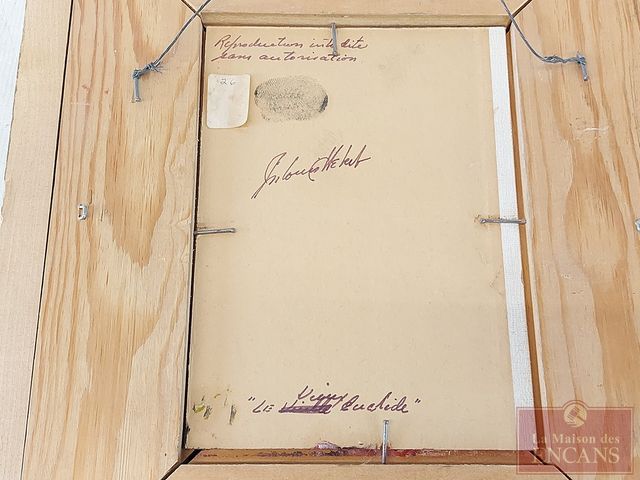 Reproduction interdite
sans autorisation
26
"LE Vieux Euclide"
La Maison des
ENCANS